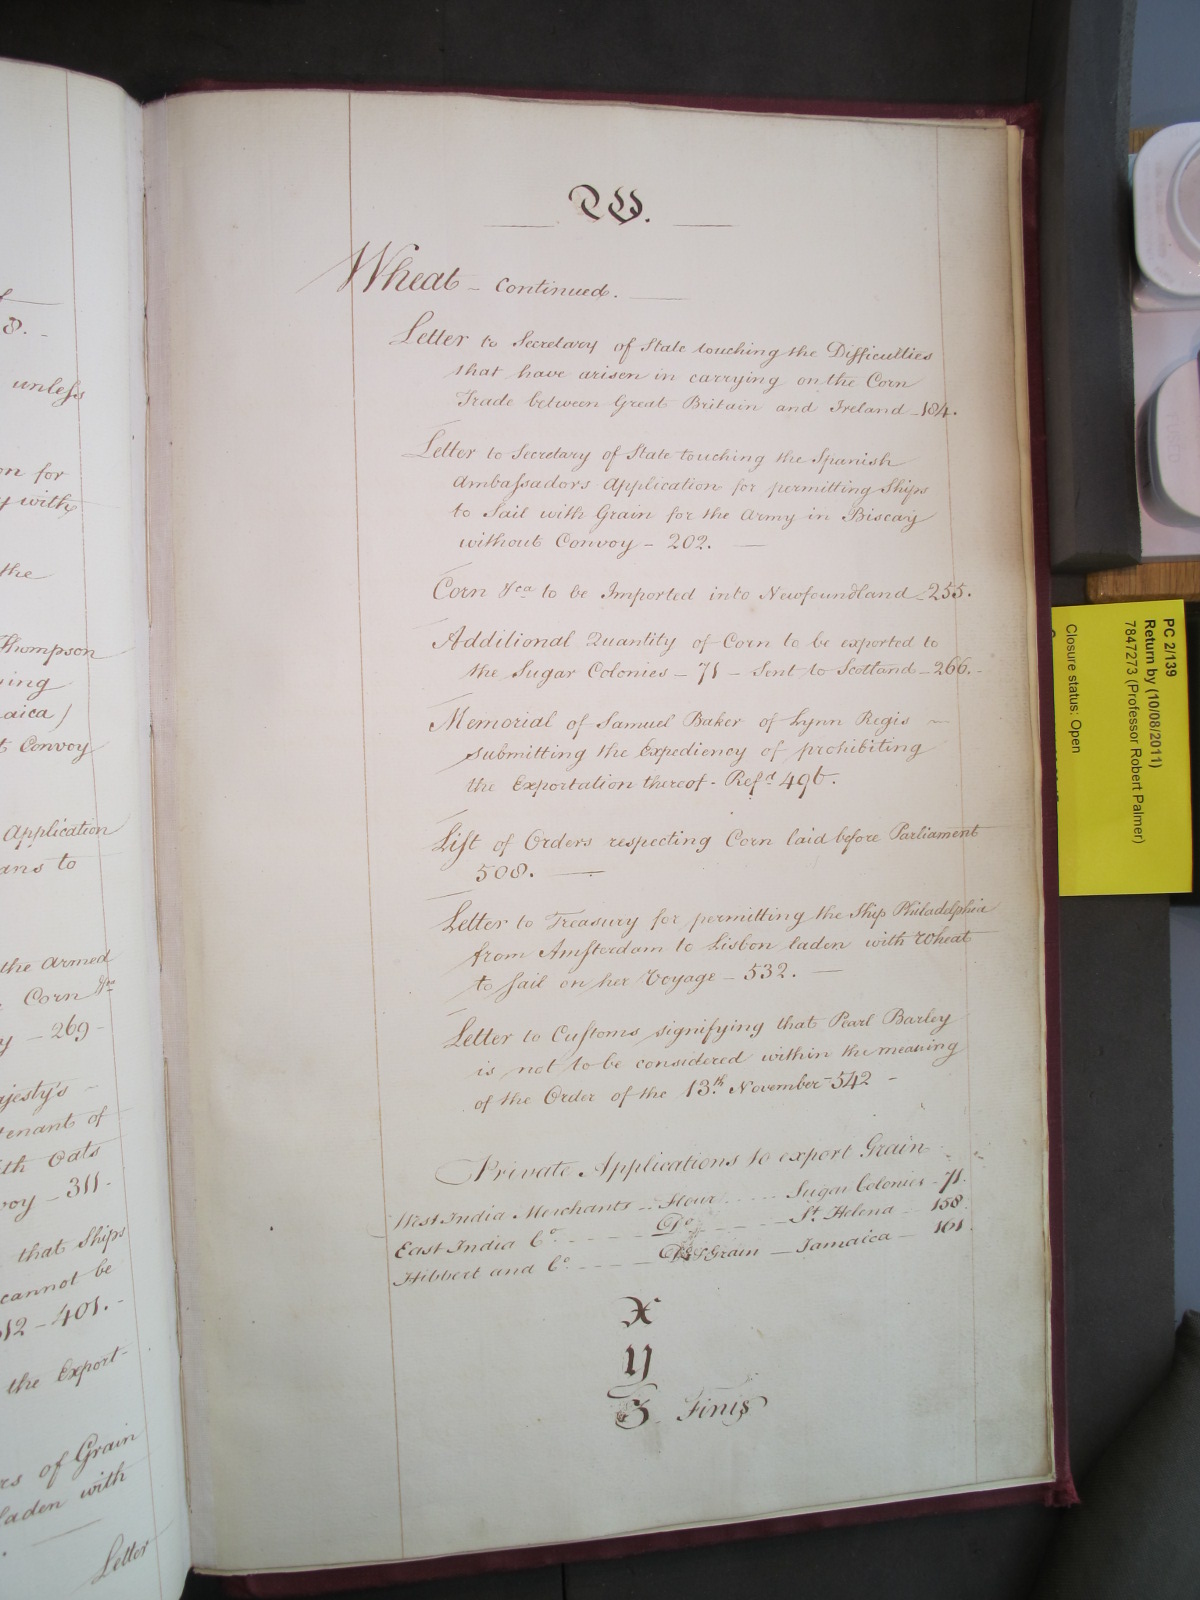 8. -
unless
on for
y with
the
Thompson
ying
aica)
t Convoy
Application
ans to
the Armed
Corn &ca
y - 269 -
ajesty's
tenant of
ith Oats
voy - 311 -
that Ships
cannot be
512 - 401. -
the Export-
rs of Grain
laden with
Letter
W.
Wheat - continued.
Letter to Secretary of State touching the Difficulties
that have arisen in carrying on the Corn
Trade between Great Britain and Ireland - 184.
Letter to Secretary of State touching the Spanish
Ambassadors Application for permitting Ships
to Sail with Grain for the Army in Biscay
without Convoy - 202.
Corn &ca to be Imported into Newfoundland - 255.
Additional Quantity of Corn to be exported to
the Sugar Colonies - 71 - Sent to Scotland - 266. -
Memorial of Samuel Baker of Lynn Regis -
submitting the Expediency of prohibiting
the Exportation thereof - Refd. 496.
List of Orders respecting Corn laid before Parliament
508.
Letter to Treasury for permitting the Ship Philadelphia
from Amsterdam to Lisbon laden with Wheat
to sail on her Voyage - 532. -
Letter to Customs signifying that Pearl Barley
is not to be considered within the meaning
of the Order of the 13th November - 542 -
Private Applications to export Grain
West India Merchants - Flour - Sugar Colonies - 71.
East India Co. - Do. - St. Helena - 158
Hibbert and Co. - Do & Grain - Jamaica - 161
X
Y
Z Finis
PC 2/139
Return by (10/08/2011)
7847273 (Professor Robert Palmer)
Closure status: Open